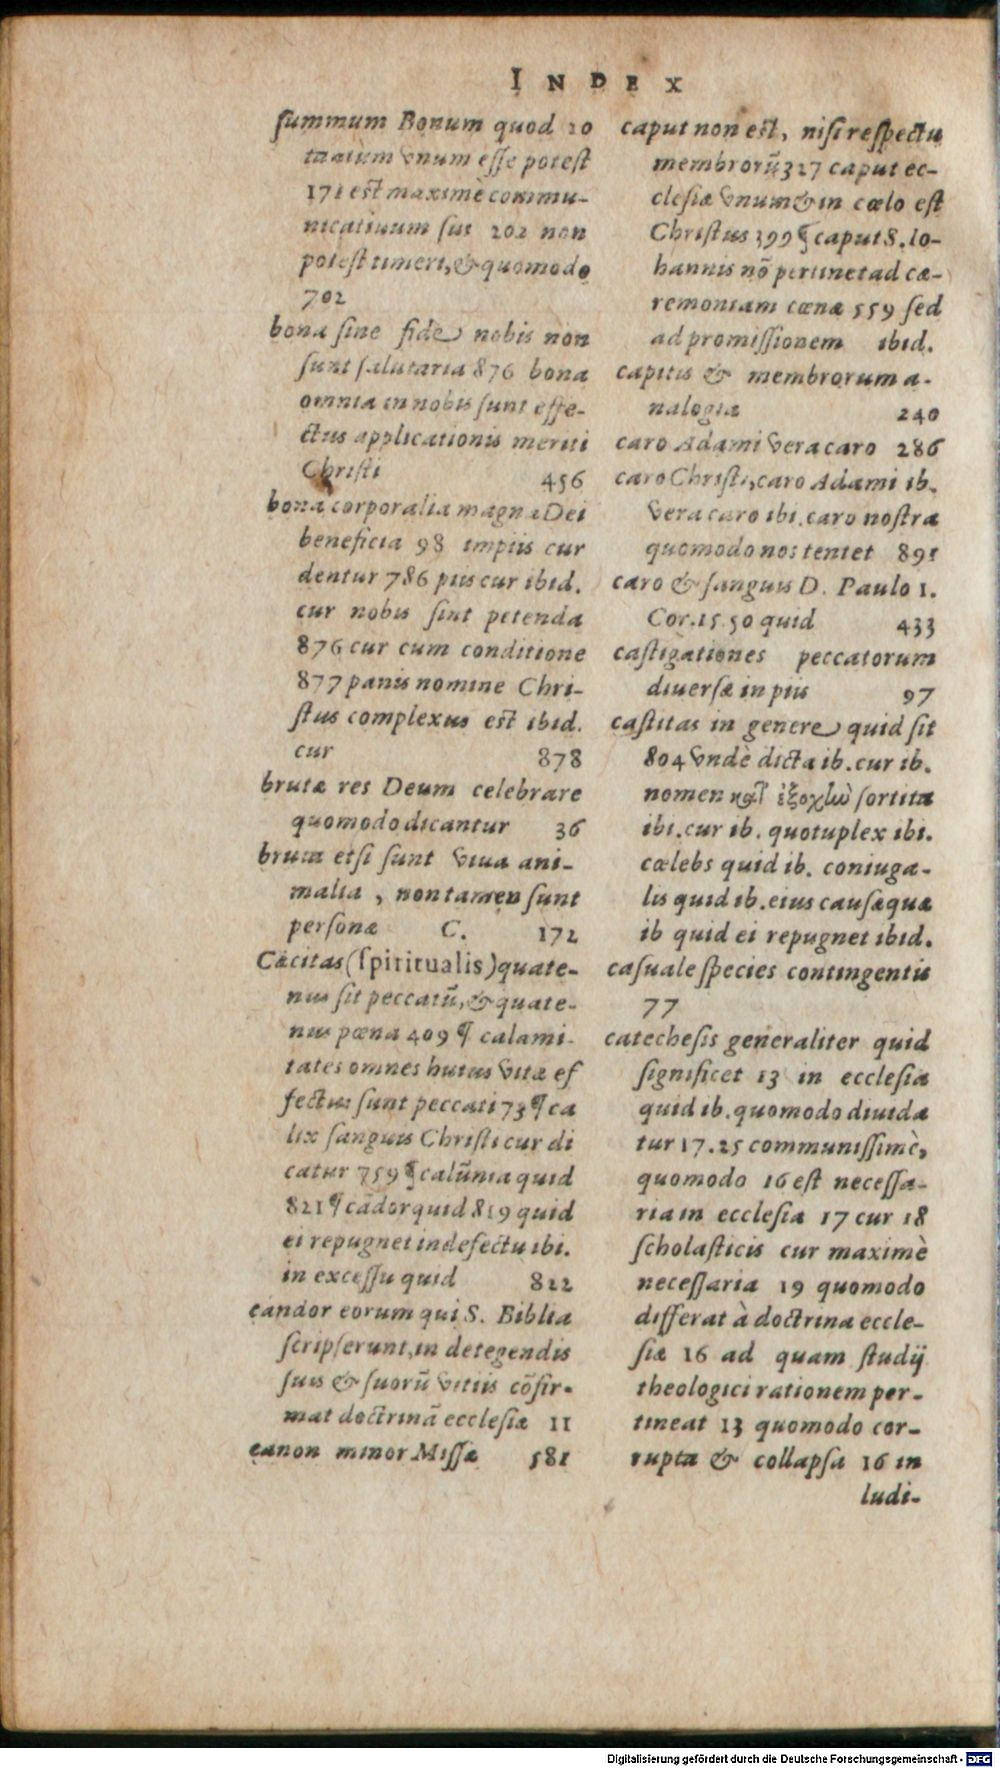 INDEX
summum Bonum quod 20
tantùm vnum esse potest
171 est maximè commu-
nicatiuum sui 202 non
potest timeri, & quomodo
702
bona sine fide nobis non
sunt salutaria 876 bona
omnia in nobis sunt effe-
ctus applicationis meriti
Christi 456
bona corporalia magna Dei
beneficia 98 impiis cur
dentur 786 piis cur ibid.
cur nobis sint petenda
876 cur cum conditione
877 panis nomine Chri-
stus complexus est ibid.
cur 878
brutæ res Deum celebrare
quomodo dicantur 36
bruta etsi sunt viua ani-
malia, non tamen sunt
personæ C. 172
Cæcitas (spiritualis) quate-
nus sit peccatū, & quate-
nus pœna 409 ¶ calami-
tates omnes huius vitæ ef
fectus sunt peccati 73 ¶ ca
lix sanguis Christi cur di
catur 759 ¶ calūnia quid
821 ¶ cādor quid 819 quid
ei repugnet in defectu ibi.
in excessu quid 822
candor eorum qui S. Biblia
scripserunt, in detegendis
suis & suorū vitiis cōfir-
mat doctrinā ecclesiæ 11
canon minor Missæ 581
caput non est, nisi respectu
membrorū 327 caput ec-
clesiæ vnum & in cœlo est
Christus 399 ¶ caput S. Io-
hannis nō pertinet ad cæ-
remoniam cœnæ 559 sed
ad promissionem ibid.
capitis & membrorum a-
nalogia 240
caro Adami vera caro 286
caro Christi, caro Adami ib.
vera caro ibi. caro nostra
quomodo nos tentet 891
caro & sanguis D. Paulo 1.
Cor. 15. 50 quid 433
castigationes peccatorum
diuersæ in piis 97
castitas in genere quid sit
804 vndè dicta ib. cur ib.
nomen κατ' ἐξοχὴν sortita
ibi. cur ib. quotuplex ibi.
cœlebs quid ib. coniuga-
lis quid ib. eius causæ quæ
ib quid ei repugnet ibid.
casuale species contingentis
77
catechesis generaliter quid
significet 13 in ecclesia
quid ib. quomodo diuida
tur 17. 25 communissimè,
quomodo 16 est necessa-
ria in ecclesia 17 cur 18
scholasticis cur maximè
necessaria 19 quomodo
differat à doctrina eccle-
siæ 16 ad quam studij
theologici rationem per-
tineat 13 quomodo cor-
rupta & collapsa 16 in
ludi-
Digitalisierung gefördert durch die Deutsche Forschungsgemeinschaft - DFG